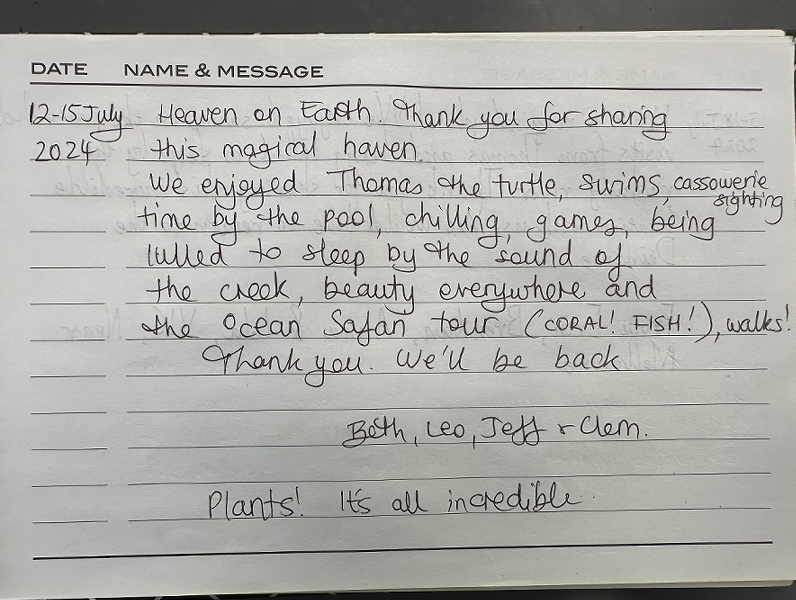 DATE NAME & MESSAGE
12-15 July Heaven on Earth. Thank you for sharing
2024 this magical haven.
We enjoyed Thomas the turtle, swims, cassowerie sighting
time by the pool, chilling, games, being
lulled to sleep by the sound of
the creek, beauty everywhere and
the Ocean Safari tour (CORAL! FISH!), walks!
Thank you. We'll be back
Beth, Leo, Jeff & Clem.
Plants! It's all incredible.